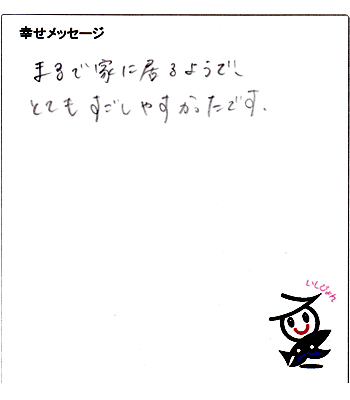 幸せメッセージ
まるで家に居るようで、
とてもすごしやすかったです。